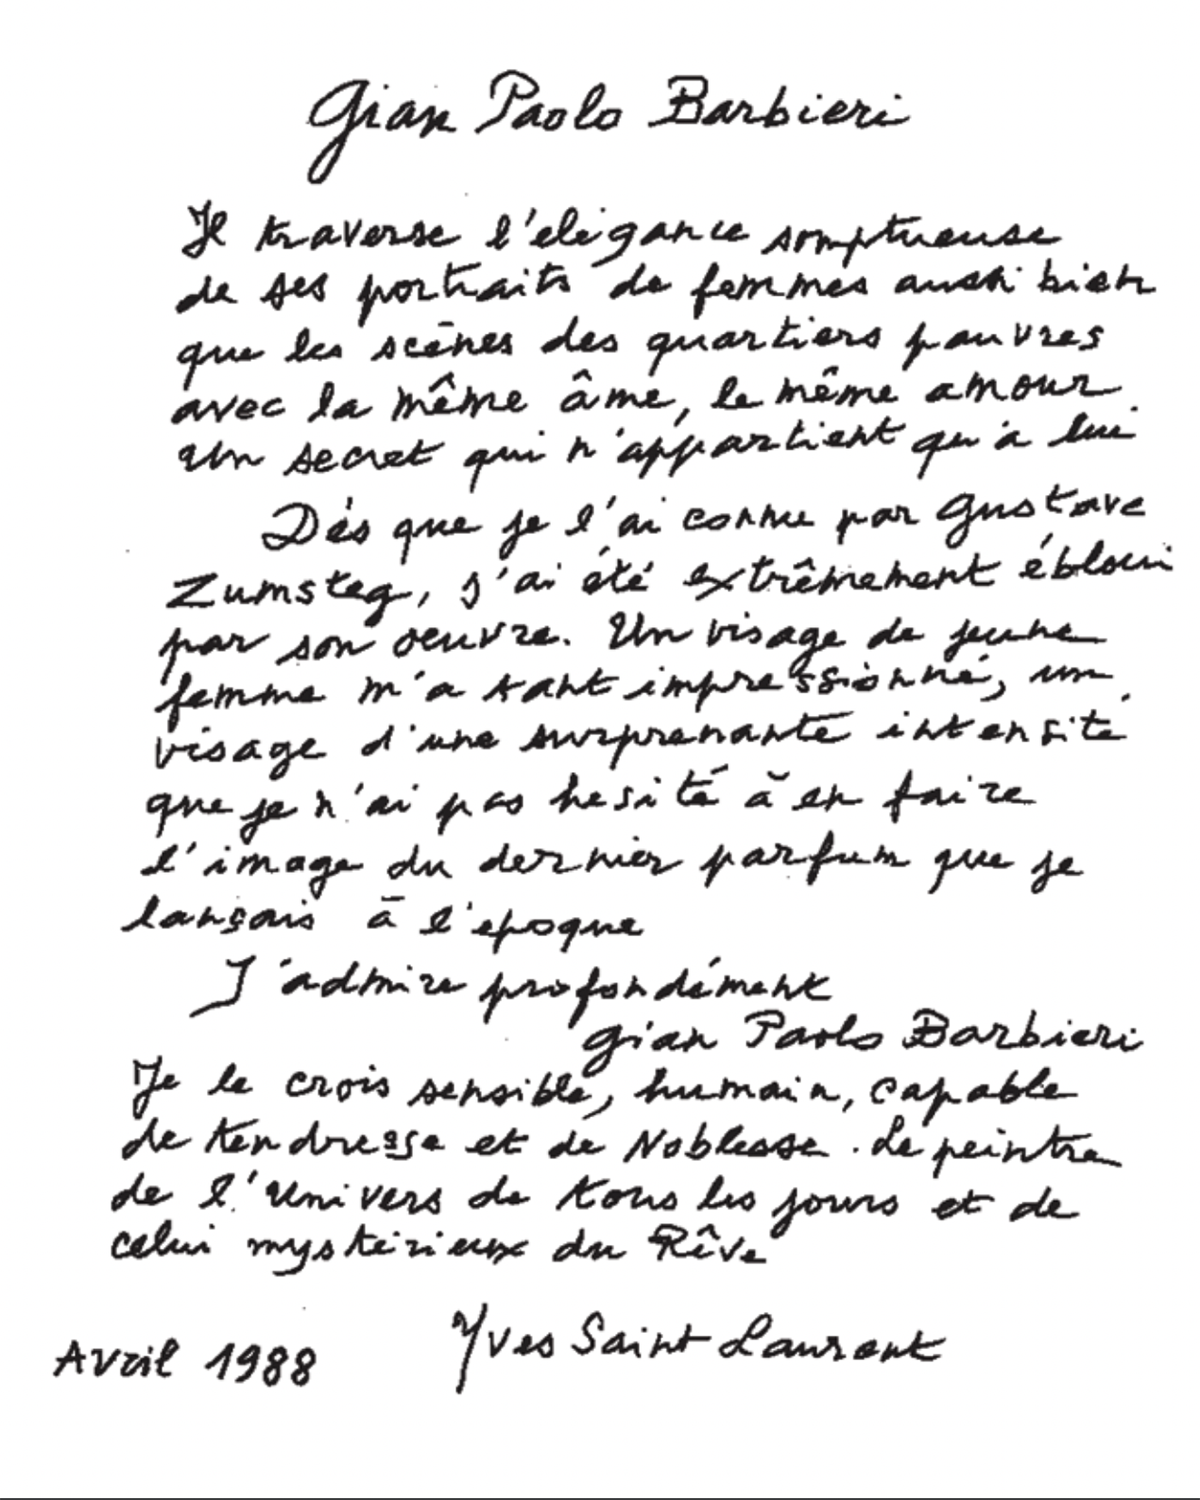 Gian Paolo Barbieri
Il traverse l'elégance somptueuse
de ses portraits de femmes aussi bien
que les scènes des quartiers pauvres
avec la même âme, le même amour
Un secret qui n'appartient qu'à lui
Dès que je l'ai connu par Gustave
Zumsteg, j'ai été extrêmement ébloui
par son oeuvre. Un visage de jeune
femme m'a tant impressionné, un
visage d'une surprenante intensité
que je n'ai pas hesité à en faire
l'image du dernier parfum que je
lançais à l'epoque
J'admire profondément
Gian Paolo Barbieri
Je le crois sensible, humain, capable
de tendresse et de Noblesse. Le peintre
de l'Univers de tous les jours et de
celui mystérieux du Rêve
Avril 1988 Yves Saint Laurent